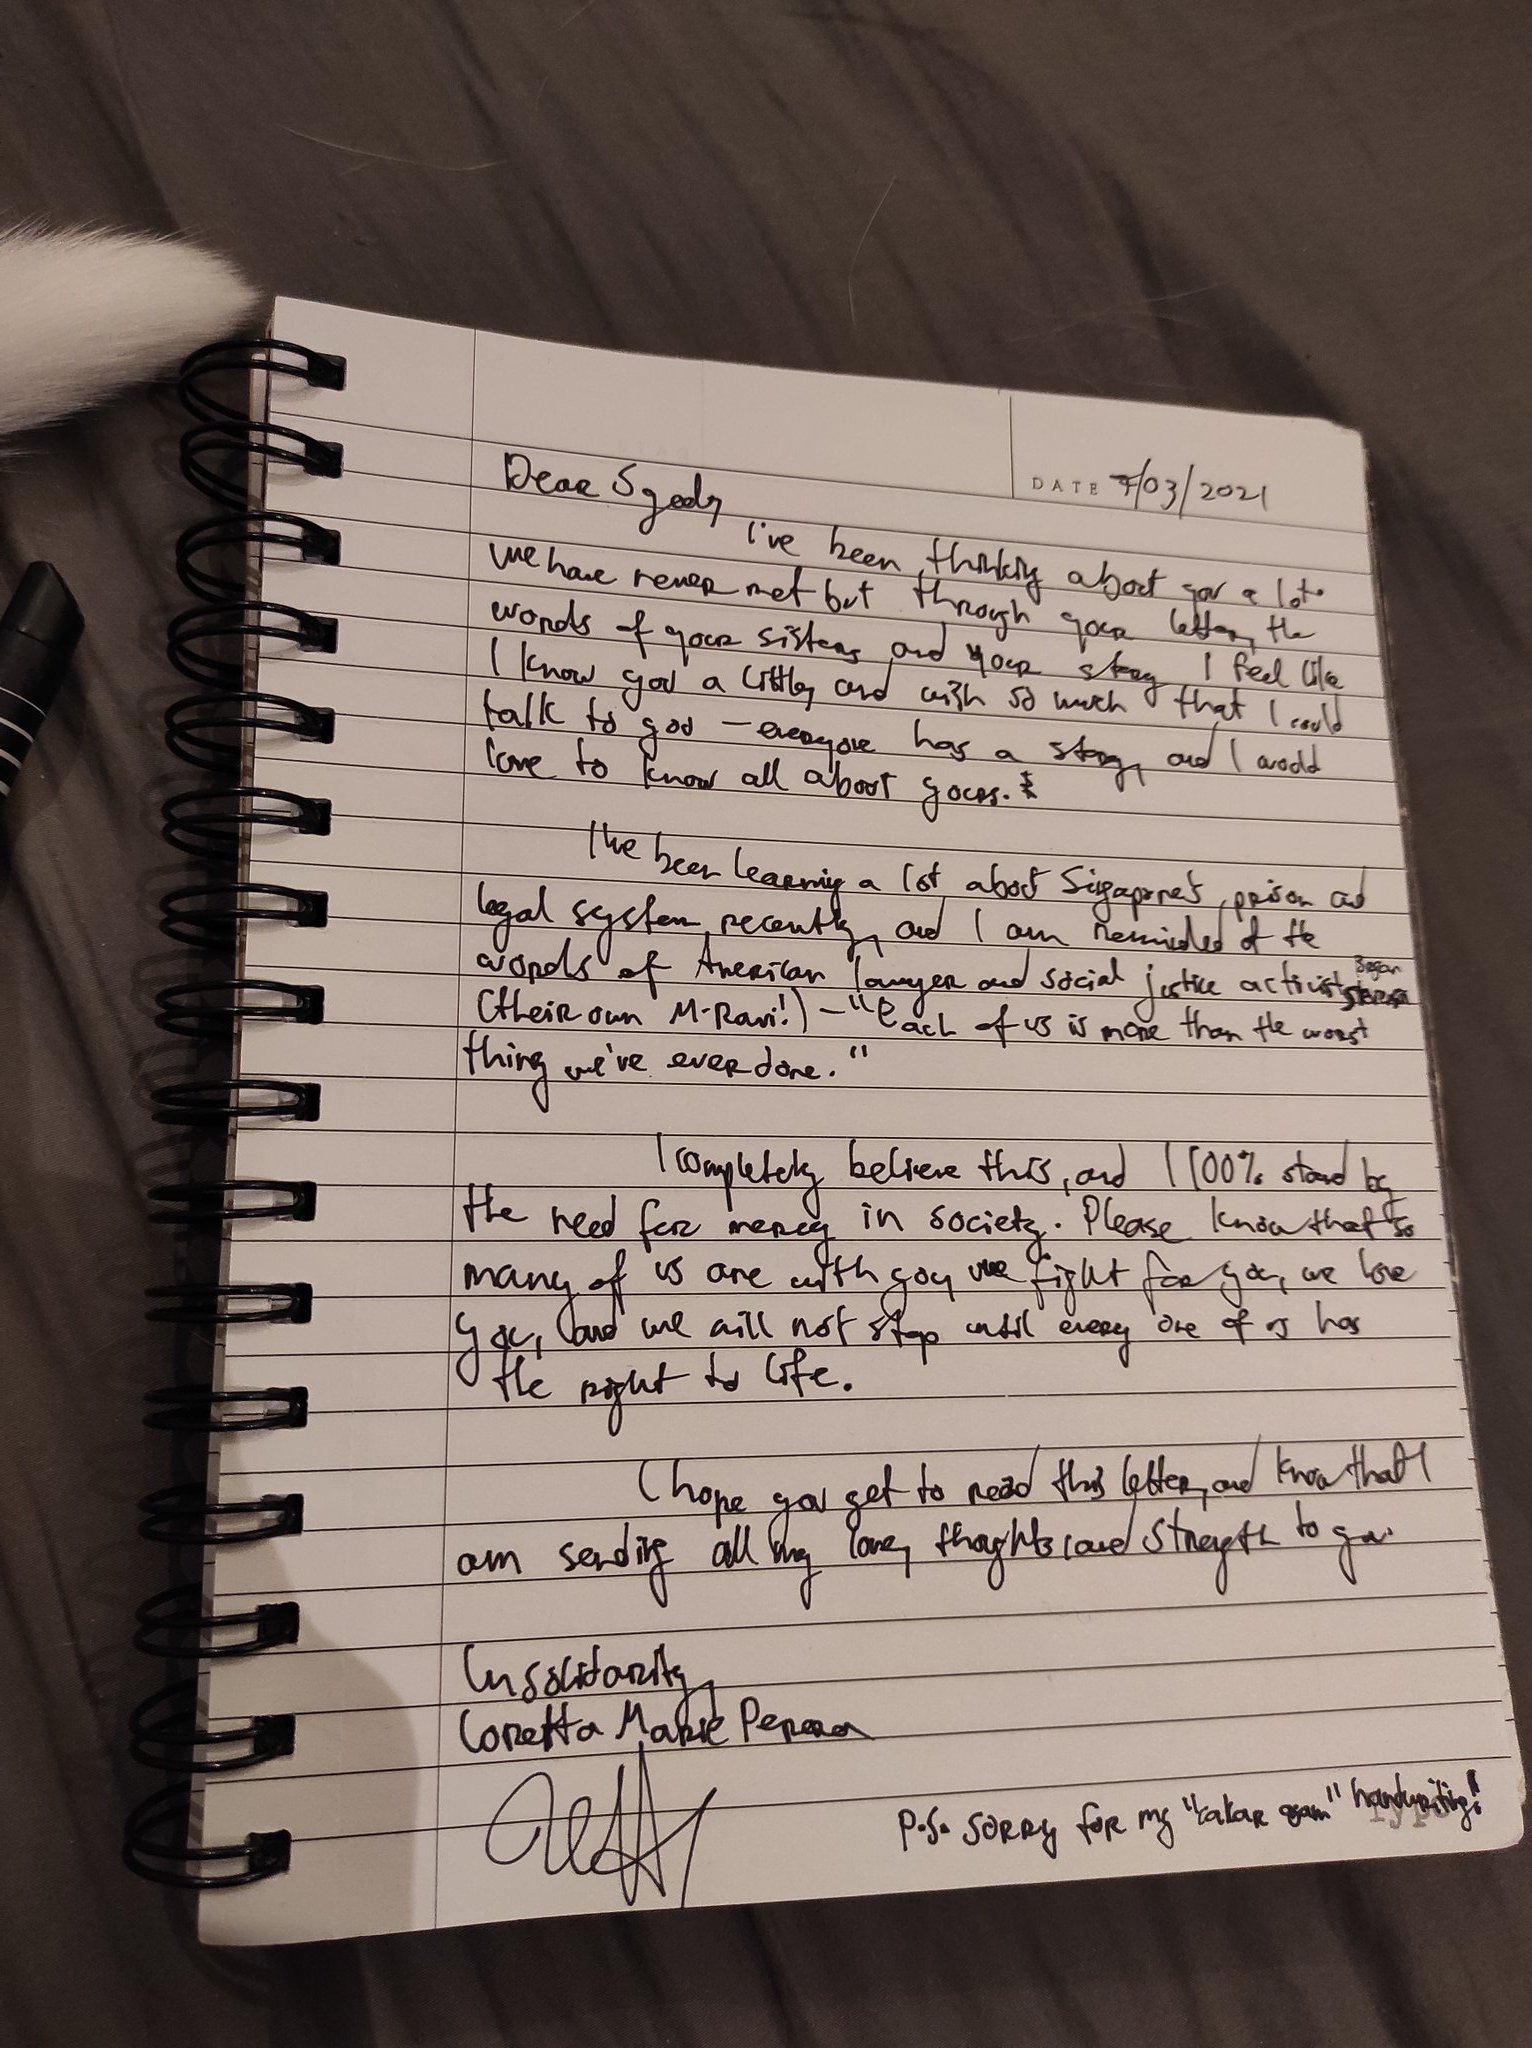 DATE 7/03/2021
Dear Syedy,
I've been thinking about you a lot.
We have never met but through your letters, the
words of your sisters, and your story I feel like
I know you a little, and wish so much that I could
talk to you — everyone has a story, and I would
love to know all about yours.
I've been learning a lot about Singapore's prison and
legal system recently, and I am reminded of the
words of American lawyer and social justice activist Bryan Stevenson
(their own M. Ravi!) - "Each of us is more than the worst
thing we've ever done."
I completely believe this, and I 100% stand by
the need for mercy in society. Please know that so
many of us are with you, we fight for you, we love
you, and we will not stop until every one of us has
the right to life.
I hope you get to read this letter, and know that I
am sending all my love, thoughts and strength to you.
In solidarity,
Loretta Marie Perera
P.S. Sorry for my "cakar ayam" handwriting!